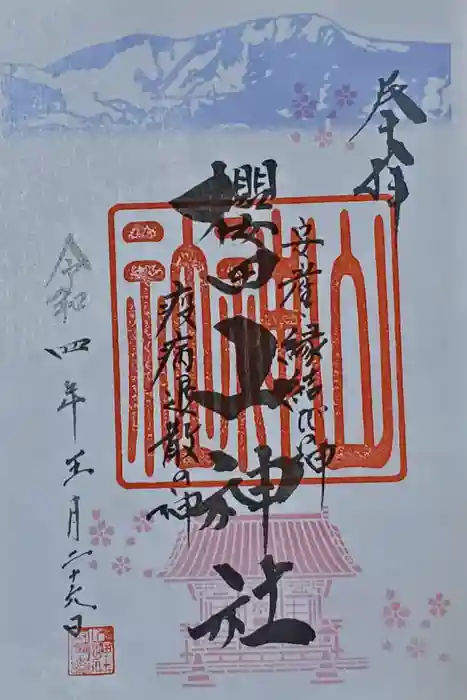 奉拝
安産縁結びの神
櫻田山神社
疫病退散の神
令和四年五月二十九日